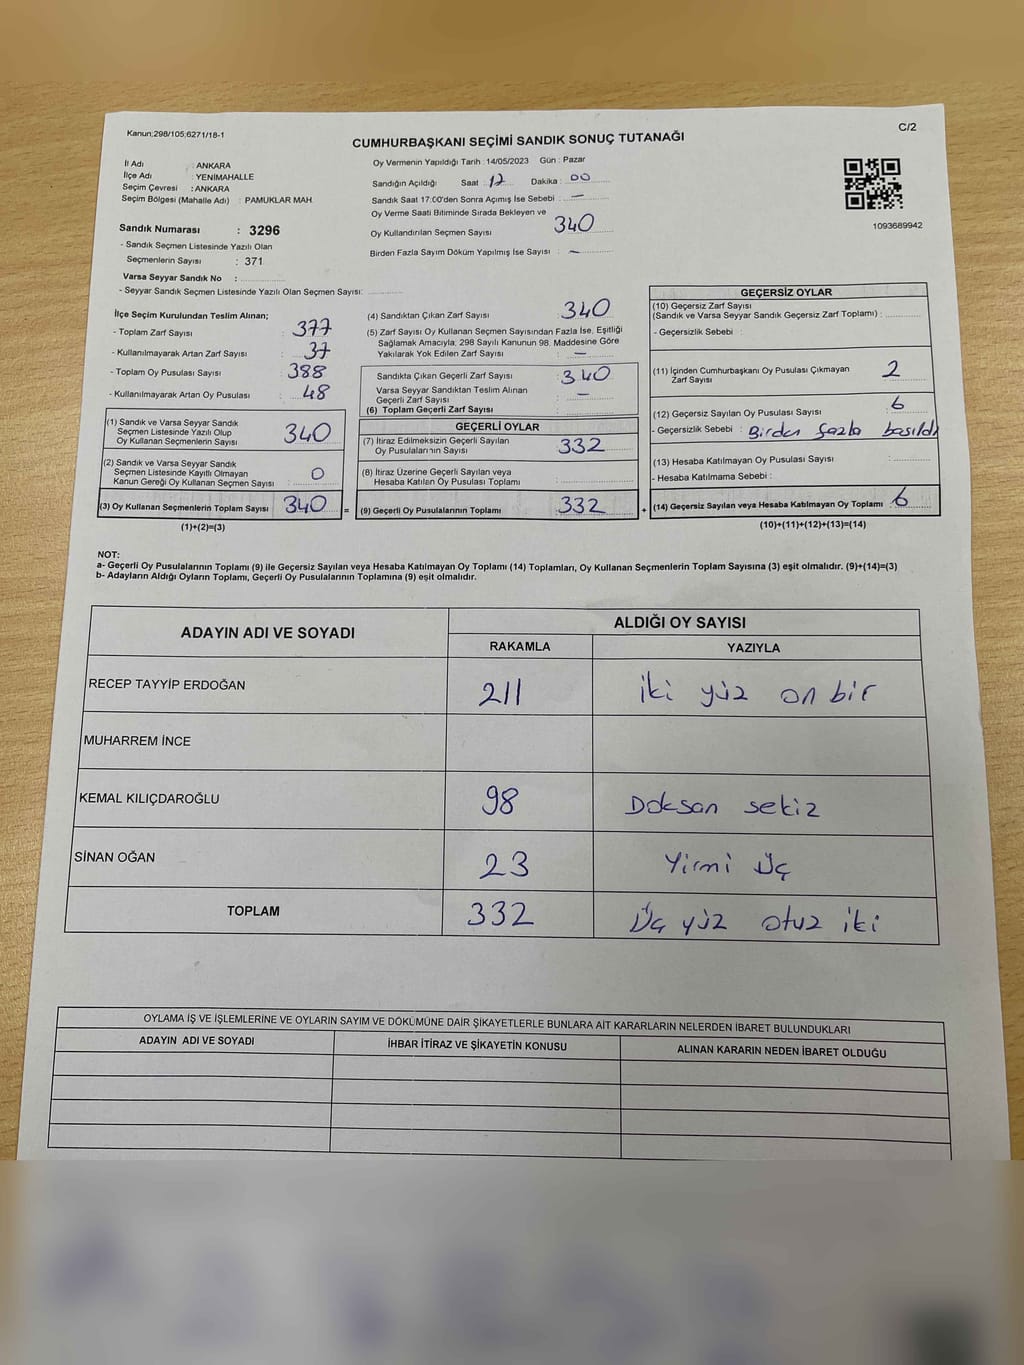 Kanun:298/105;6271/18-1
C/2
CUMHURBAŞKANI SEÇİMİ SANDIK SONUÇ TUTANAĞI
İl Adı : ANKARA
İlçe Adı : YENİMAHALLE
Seçim Çevresi : ANKARA
Seçim Bölgesi (Mahalle Adı) : PAMUKLAR MAH.
Sandık Numarası : 3296
- Sandık Seçmen Listesinde Yazılı Olan
Seçmenlerin Sayısı : 371
Varsa Seyyar Sandık No :
- Seyyar Sandık Seçmen Listesinde Yazılı Olan Seçmen Sayısı:
Oy Vermenin Yapıldığı Tarih : 14/05/2023 Gün : Pazar
Sandığın Açıldığı Saat : 17 Dakika : 00
Sandık Saat 17:00'den Sonra Açımış İse Sebebi : —
Oy Verme Saati Bitiminde Sırada Bekleyen ve
Oy Kullandırılan Seçmen Sayısı : 340
Birden Fazla Sayım Döküm Yapılmış İse Sayısı : —
1093689942
İlçe Seçim Kurulundan Teslim Alınan;
- Toplam Zarf Sayısı : 377
- Kullanılmayarak Artan Zarf Sayısı : 37
- Toplam Oy Pusulası Sayısı : 388
- Kullanılmayarak Artan Oy Pusulası : 48
(1) Sandık ve Varsa Seyyar Sandık
Seçmen Listesinde Yazılı Olup
Oy Kullanan Seçmenlerin Sayısı 340
(2) Sandık ve Varsa Seyyar Sandık
Seçmen Listesinde Kayıtlı Olmayan
Kanun Gereği Oy Kullanan Seçmen Sayısı : 0
(3) Oy Kullanan Seçmenlerin Toplam Sayısı 340 =
(1)+(2)=(3)
(4) Sandıktan Çıkan Zarf Sayısı : 340
(5) Zarf Sayısı Oy Kullanan Seçmen Sayısından Fazla İse, Eşitliği
Sağlamak Amacıyla; 298 Sayılı Kanunun 98. Maddesine Göre
Yakılarak Yok Edilen Zarf Sayısı : —
Sandıkta Çıkan Geçerli Zarf Sayısı : 340
Varsa Seyyar Sandıktan Teslim Alınan
Geçerli Zarf Sayısı : —
(6) Toplam Geçerli Zarf Sayısı :
GEÇERLİ OYLAR
(7) İtiraz Edilmeksizin Geçerli Sayılan
Oy Pusulalarının Sayısı : 332
(8) İtiraz Üzerine Geçerli Sayılan veya
Hesaba Katılan Oy Pusulası Toplamı :
(9) Geçerli Oy Pusulalarının Toplamı : 332 +
GEÇERSİZ OYLAR
(10) Geçersiz Zarf Sayısı
(Sandık ve Varsa Seyyar Sandık Geçersiz Zarf Toplamı) :
- Geçersizlik Sebebi :
(11) İçinden Cumhurbaşkanı Oy Pusulası Çıkmayan
Zarf Sayısı : 2
(12) Geçersiz Sayılan Oy Pusulası Sayısı : 6
- Geçersizlik Sebebi : Birden fazla basıldı
(13) Hesaba Katılmayan Oy Pusulası Sayısı :
- Hesaba Katılmama Sebebi :
(14) Geçersiz Sayılan veya Hesaba Katılmayan Oy Toplamı : 6
(10)+(11)+(12)+(13)=(14)
NOT:
a- Geçerli Oy Pusulalarının Toplamı (9) ile Geçersiz Sayılan veya Hesaba Katılmayan Oy Toplamı (14) Toplamları, Oy Kullanan Seçmenlerin Toplam Sayısına (3) eşit olmalıdır. (9)+(14)=(3)
b- Adayların Aldığı Oyların Toplamı, Geçerli Oy Pusulalarının Toplamına (9) eşit olmalıdır.
ADAYIN ADI VE SOYADI
ALDIĞI OY SAYISI
RAKAMLA YAZIYLA
RECEP TAYYİP ERDOĞAN 211 iki yüz on bir
MUHARREM İNCE
KEMAL KILIÇDAROĞLU 98 Doksan sekiz
SİNAN OĞAN 23 Yirmi Üç
TOPLAM 332 Üç yüz otuz iki
OYLAMA İŞ VE İŞLEMLERİNE VE OYLARIN SAYIM VE DÖKÜMÜNE DAİR ŞİKAYETLERLE BUNLARA AİT KARARLARIN NELERDEN İBARET BULUNDUKLARI
ADAYIN ADI VE SOYADI İHBAR İTİRAZ VE ŞİKAYETİN KONUSU ALINAN KARARIN NEDEN İBARET OLDUĞU